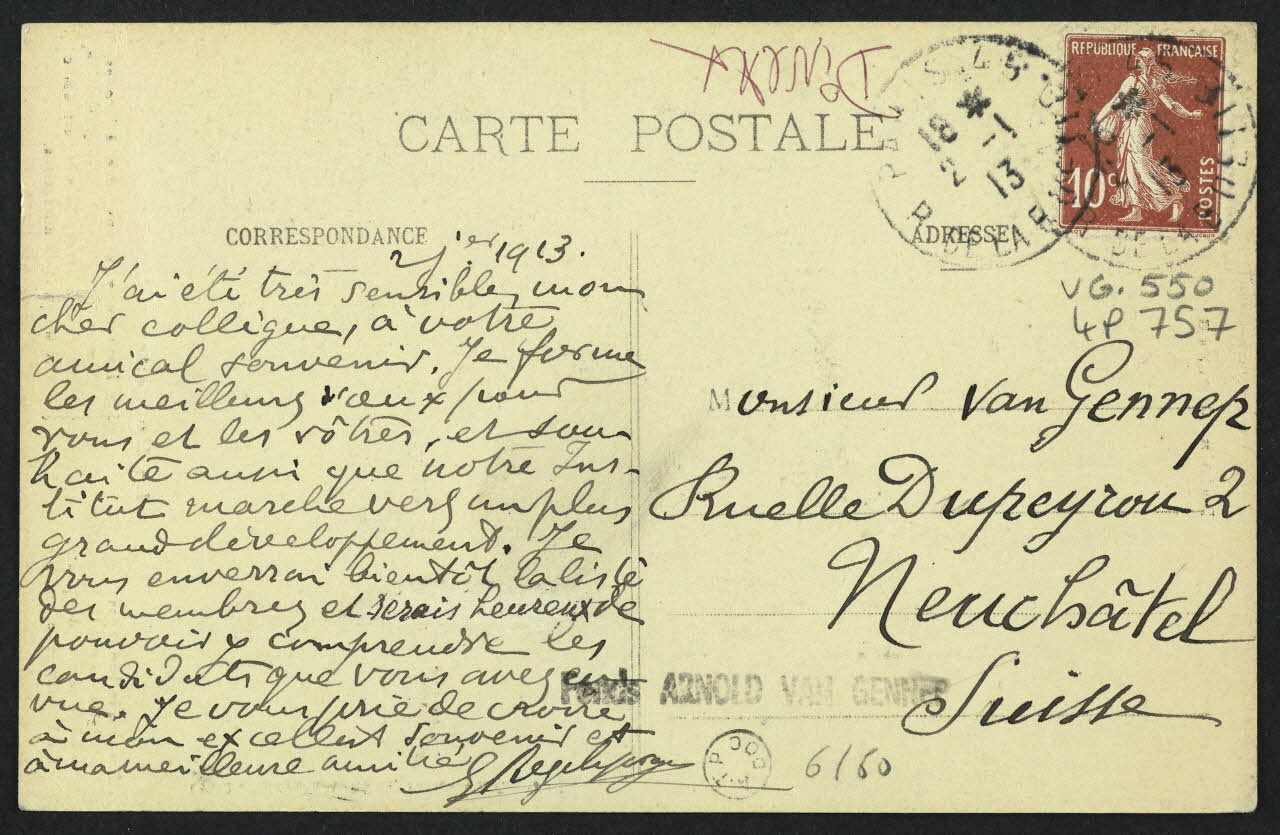 CARTE POSTALE
RÉPUBLIQUE FRANÇAISE
10c
POSTES
PARIS
18 * 2 -1 13
R. DE LA
CORRESPONDANCE
ADRESSE
2 jer 1913.
J'ai été très sensible, mon
cher collègue, à votre
amical souvenir. Je forme
les meilleurs vœux pour
vous et les vôtres, et sou-
haite aussi que notre Ins-
titut marche vers un plus
grand développement. Je
vous enverrai bientôt la liste
des membres et serais heureux de
pouvoir y comprendre les
candidats que vous avez en
vue. Je vous prie de croire
à mon excellent souvenir et
à ma meilleure amitié
VG. 550
4P 757
Monsieur Van Gennep
Ruelle Dupeyrou 2
Neuchâtel
Suisse
Fonds ARNOLD VAN GENNEP
6/60